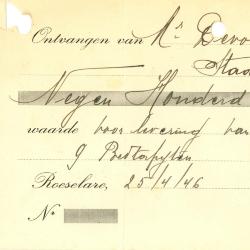 Ontvangen van Mr Devo
Staa
Negen Honderd
waarde voor levering van
9 Bedtapyten
Roeselare, 25/4/46
No